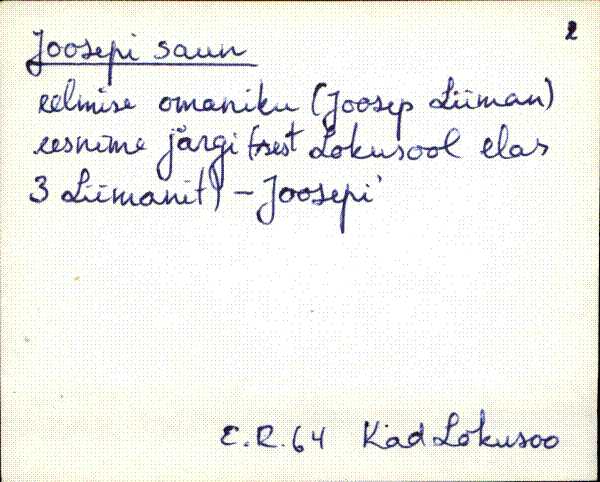 2
Joosepi saun
eelmise omaniku (Joosep Liiman)
eesnime järgi (sest Lokusool elas
3 Liimanit) – Joosepi'
E.R. 64 Kad Lokusoo